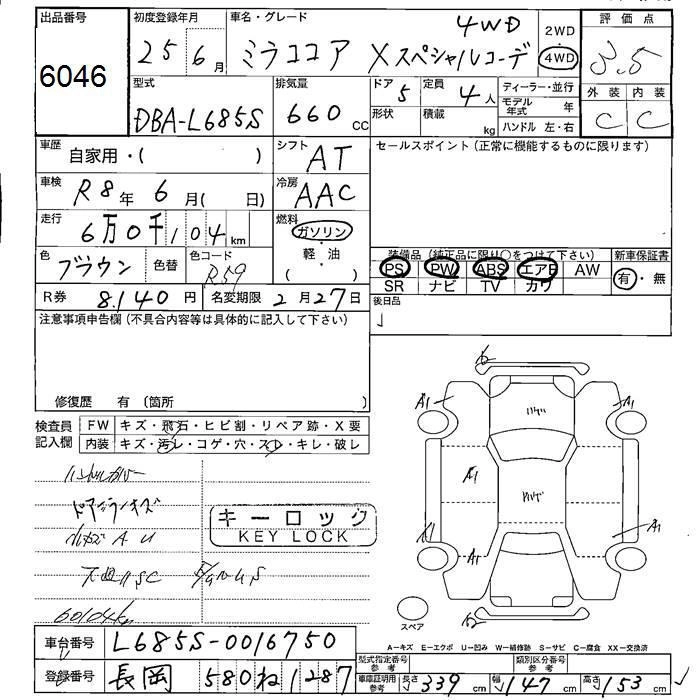 出品番号 初度登録年月 車名・グレード 4WD 2WD 評価点
6046 25 6月 ミラココア Xスペシャルコーデ 4WD 3.5
型式 排気量 ドア 5 定員 4人 ディーラー・並行 外装 内装
DBA-L685S 660 CC 形状 積載 kg モデル年式 年 C C
ハンドル 左・右
車歴 自家用・( ) シフト AT セールスポイント(正常に機能するものに限ります)
車検 R8年 6月( 日) 冷房 AAC
走行 6万0千104km 燃料 ガソリン
色 ブラウン 色替 色コード R59 軽・油 ( )
装備品(純正品に限り○をつけて下さい) 新車保証書
PS PW ABS エアB AW 有・無
SR ナビ TV カワ
R券 8,140円 名変期限 2月27日 後日品
注意事項申告欄(不具合内容等は具体的に記入して下さい)
修復歴 有(箇所
検査員記入欄 FW キズ・飛石・ヒビ割・リペア跡・X要
内装 キズ・汚レ・コゲ・穴・スレ・キレ・破レ
ハンドルカバー
ドアミラーキズ
小キズ A U
下廻り SC
60104km
キーロック
KEY LOCK
A1 A1
A1
A1 A1
スペア
A-キズ E-エクボ U-凹み W-補修跡 S-サビ C-腐食 XX-交換済
車台番号 L685S-0016750 型式指定番号 参考 類別区分番号 参考
登録番号 長岡 580 ね 1287 車庫証明用 参考 長さ 339 cm 幅 147 cm 高さ 153 cm